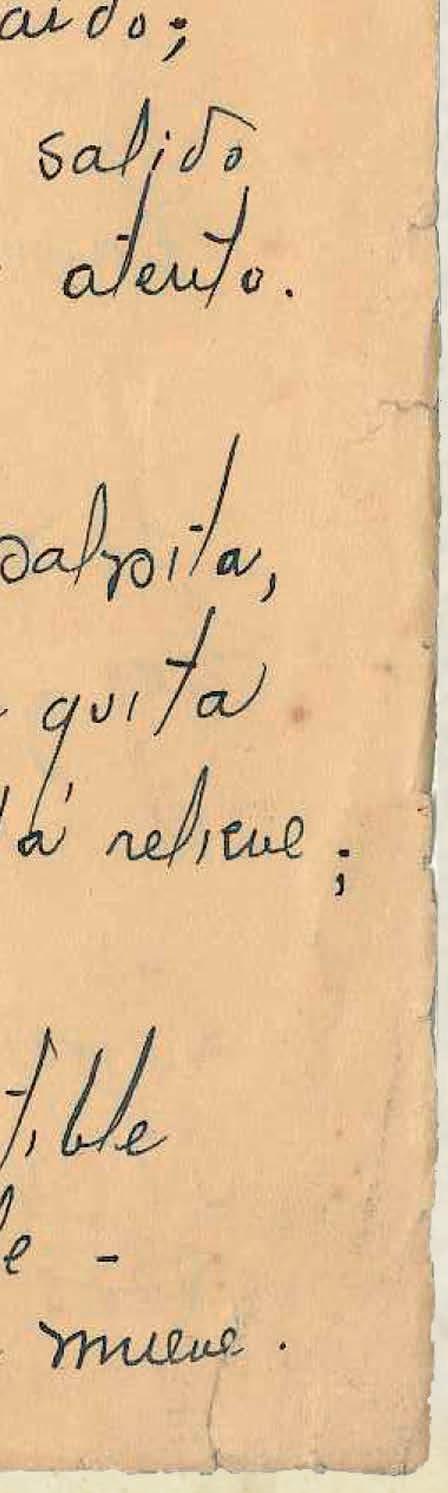 aido;
salido
atento.
palpita,
quita
da relieve;
tible
le -
mueve.